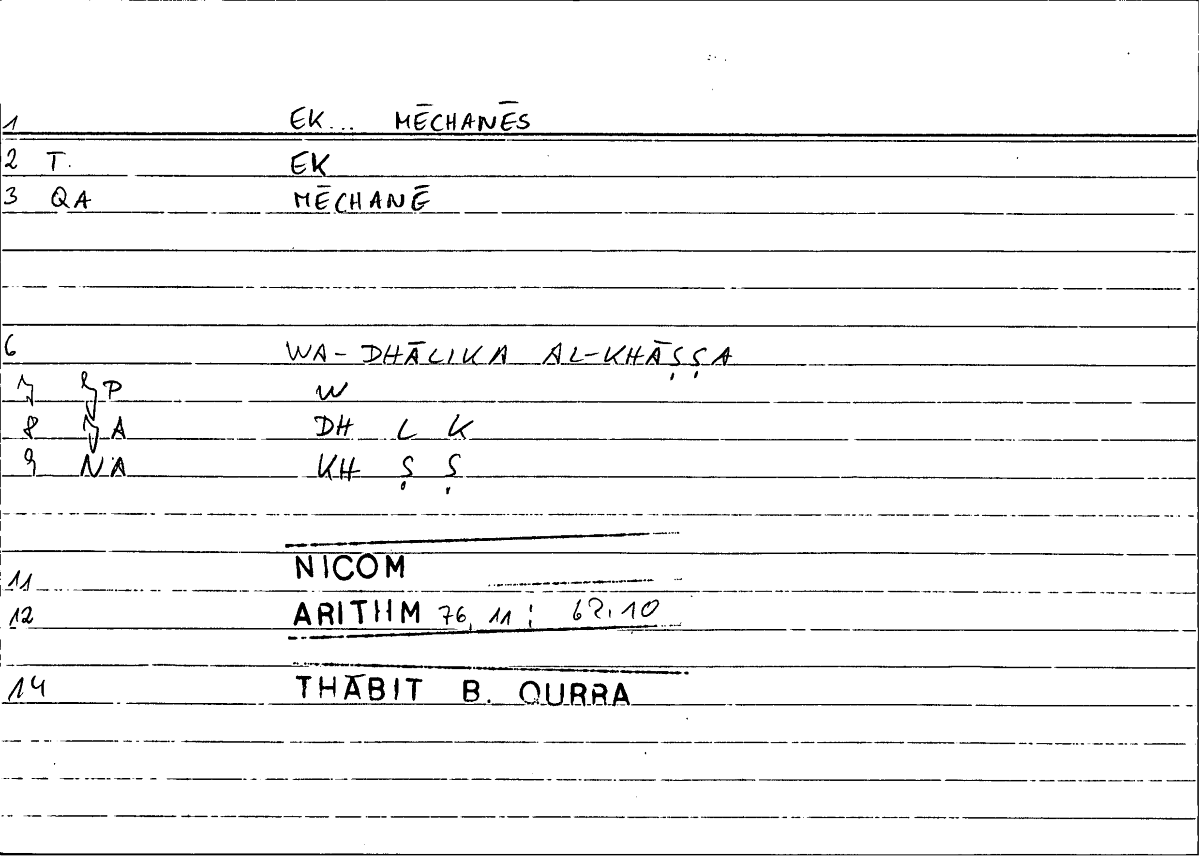 1 EK... MĒCHANĒS
2 T. EK
3 QA MĒCHANĒ
6 WA-DHĀLIKA AL-KHĀṢṢA
7 P W
8 A DH L K
9 NA KH Ṣ Ṣ
11 NICOM
12 ARITHM 76, 11 ; 62.10
14 THĀBIT B. QURRA